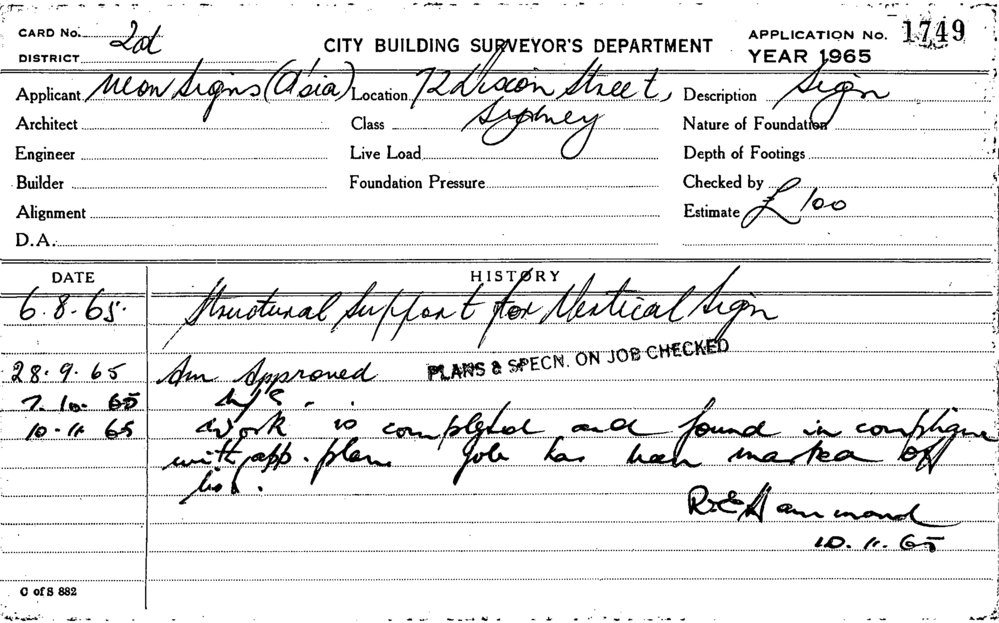 CARD No. 2d
DISTRICT
CITY BUILDING SURVEYOR'S DEPARTMENT
APPLICATION No. 1749
YEAR 1965
Applicant Neon Signs (A'sia) Location 72 Dixon Street, Sydney Description Sign
Architect Class Nature of Foundation
Engineer Live Load Depth of Footings
Builder Foundation Pressure Checked by
Alignment Estimate £100
D.A.
DATE HISTORY
6.8.65. Structural Support for Vertical Sign
28.9.65 Am Approved PLANS & SPECN. ON JOB CHECKED
7.10.65
10.11.65 Work is completed and found in compliance
with app. plan. Job has been marked off
list.
R.E. Hammond
10.11.65
C of S 882